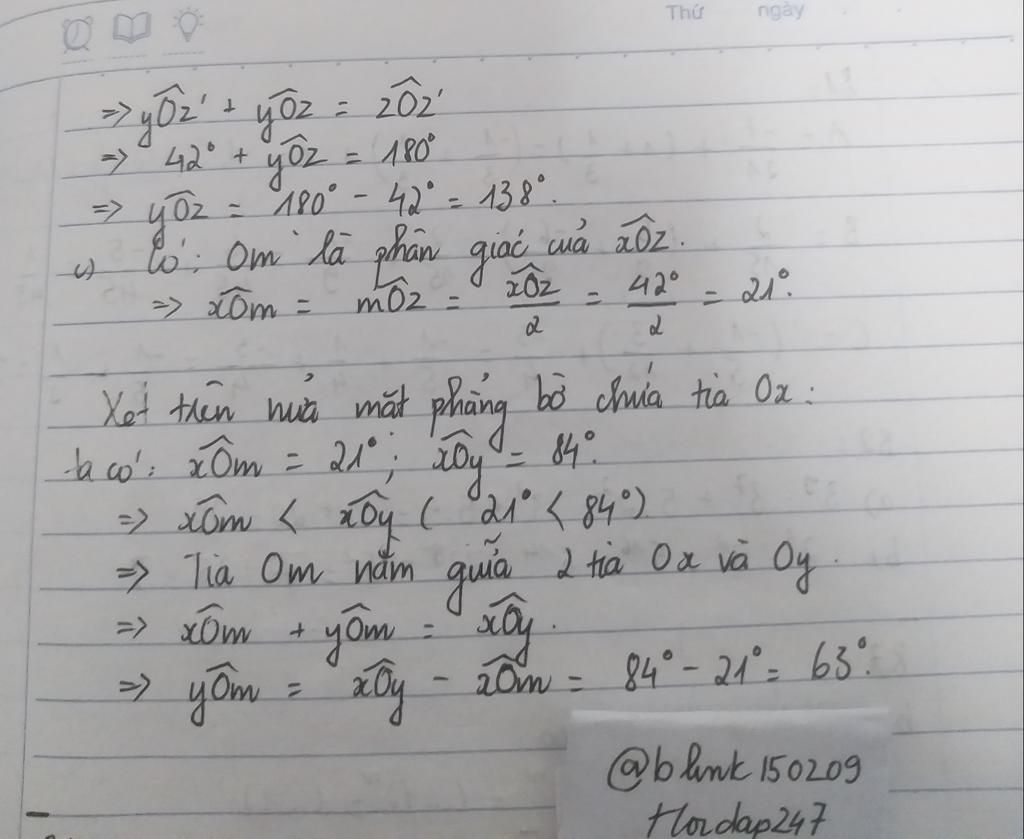 Thứ ngày
=> yÔz' + yÔz = zÔz'
=> 42° + yÔz = 180°
=> yÔz = 180° - 42° = 138°.
c) Có: Om là phân giác của xÔz.
=> xÔm = mÔz = xÔz/2 = 42°/2 = 21°.
Xét trên nửa mặt phẳng bờ chứa tia Ox:
ta có: xÔm = 21°; xÔy = 84°.
=> xÔm < xÔy ( 21° < 84°)
=> Tia Om nằm giữa 2 tia Ox và Oy.
=> xÔm + yÔm = xÔy.
=> yÔm = xÔy - xÔm = 84° - 21° = 63°.
@blink150209
Hoidap247